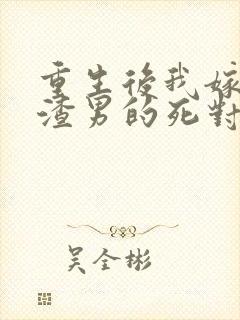 重生後我嫁
渣男的死對
吳全彬